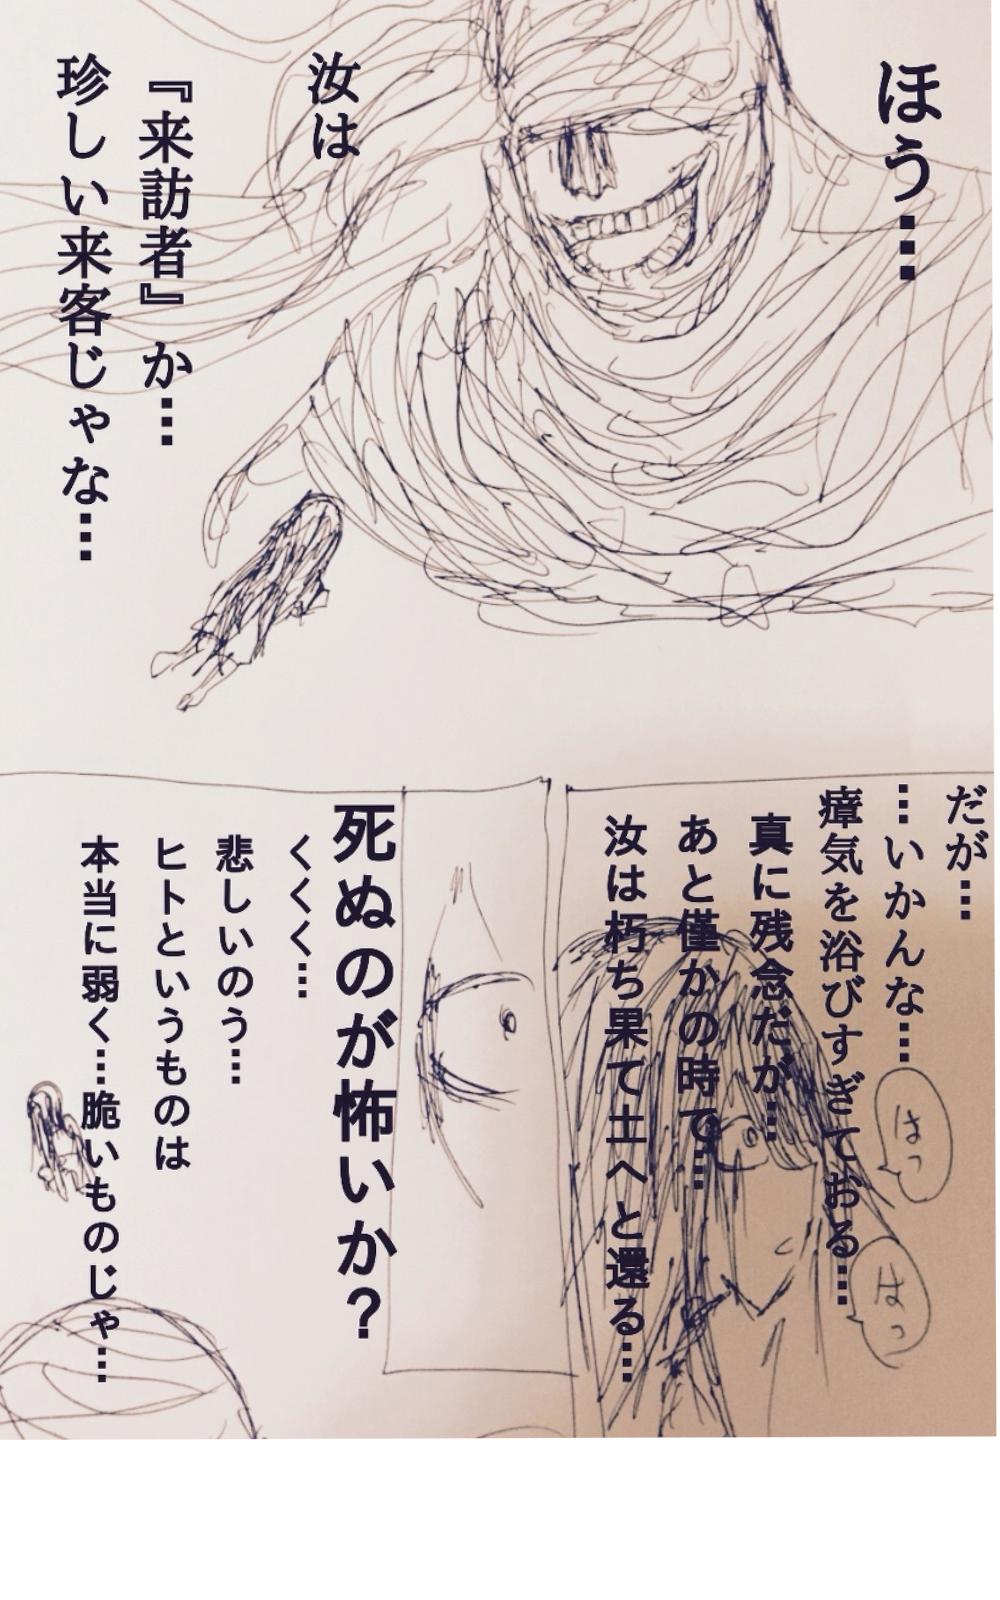 ほう…
汝は
『来訪者』か…
珍しい来客じゃな…
だが…
…いかんな…
瘴気を浴びすぎておる…
真に残念だが…
あと僅かの時で…
汝は朽ち果て土へと還る…
はっ
はっ
死ぬのが怖いか?
くくく…
悲しいのう…
ヒトというものは
本当に弱く…脆いものじゃ…